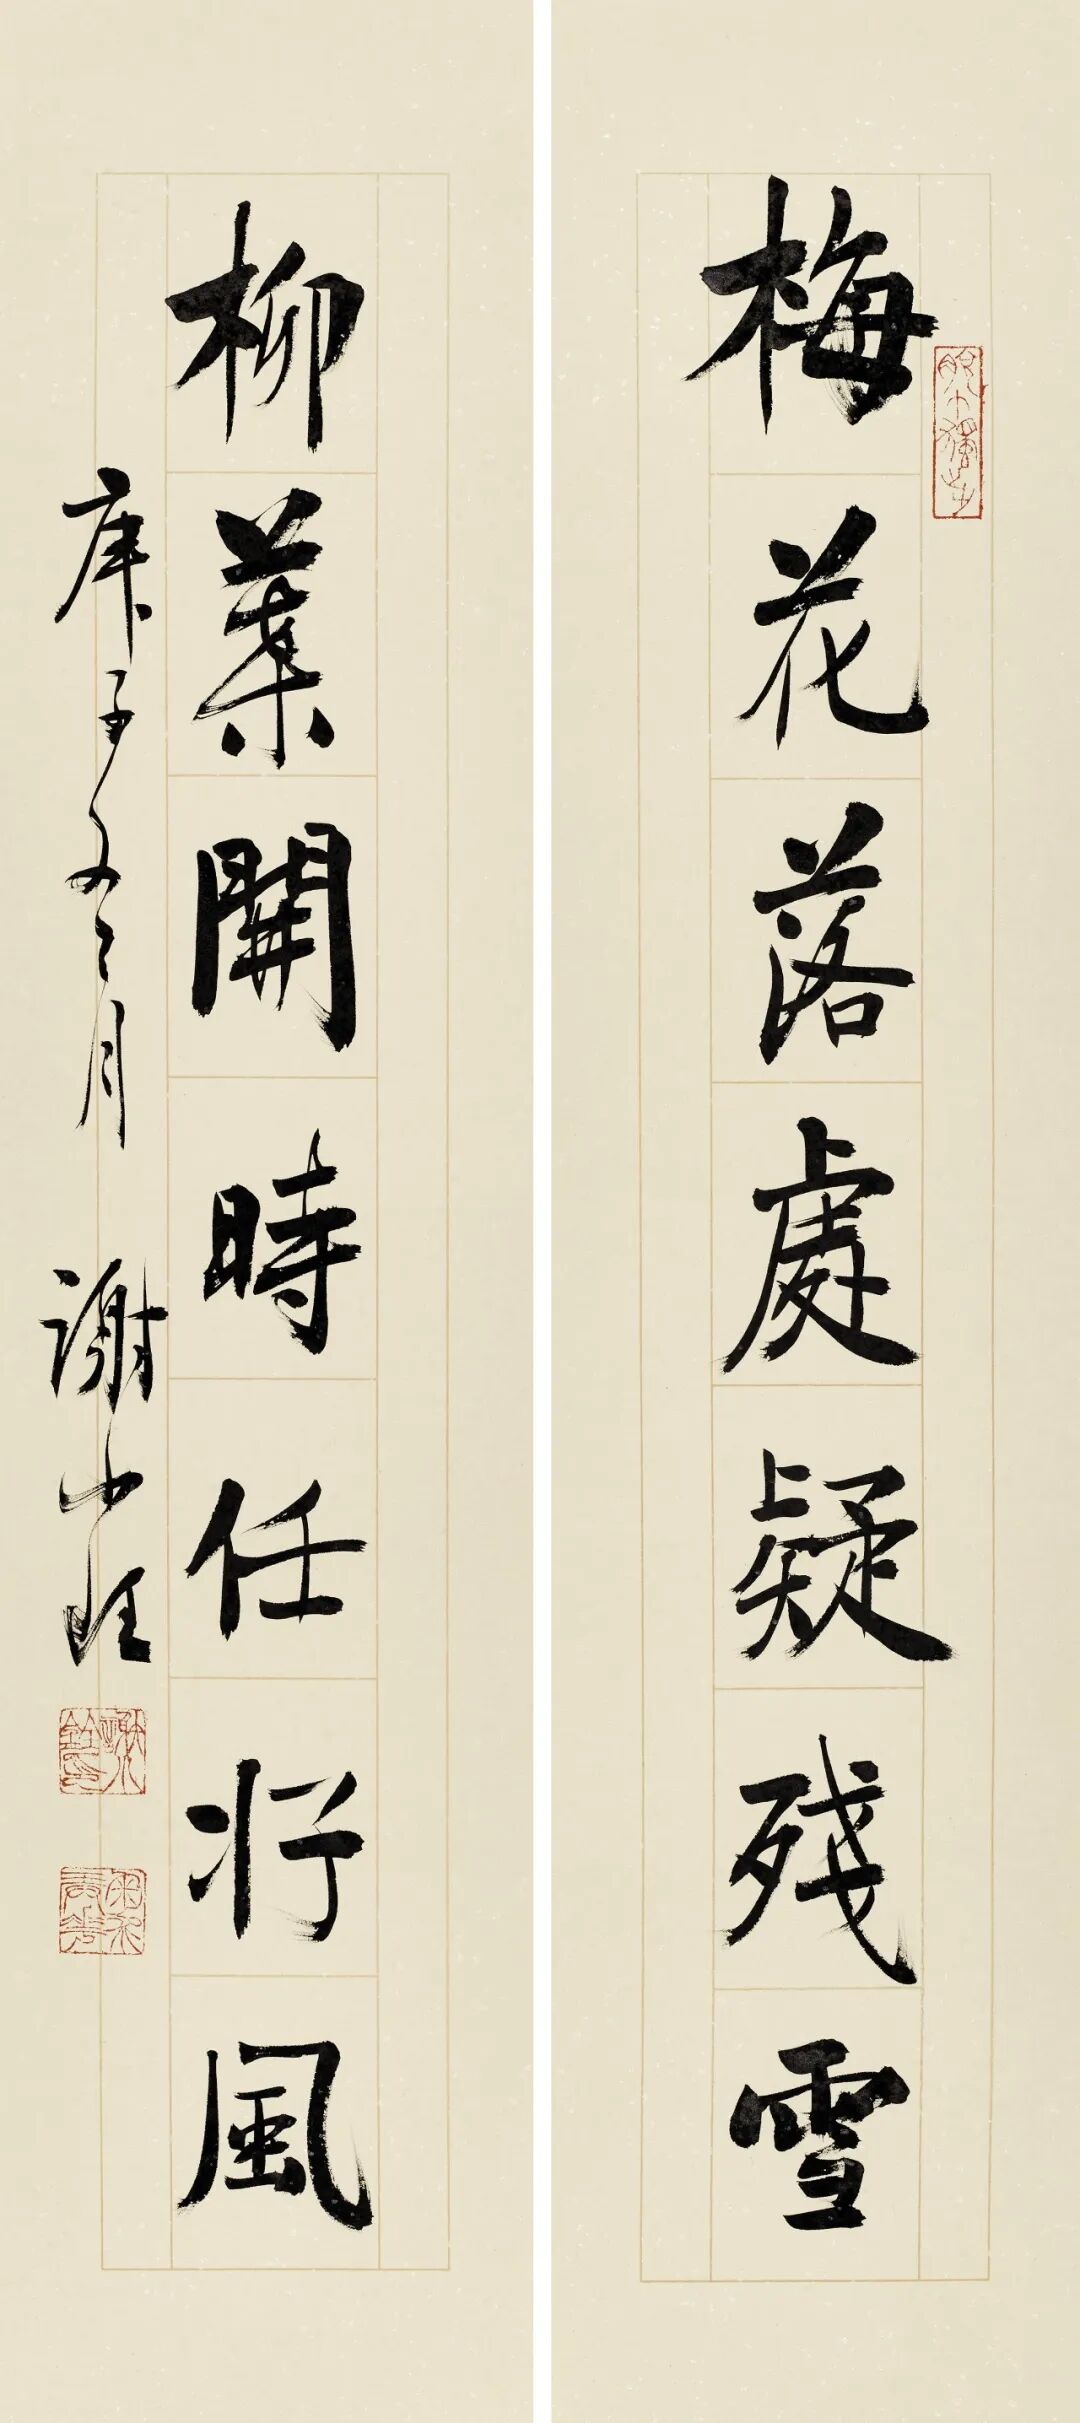 梅花落處疑殘雪
柳葉開時任好風
庚子冬月 謝小銓